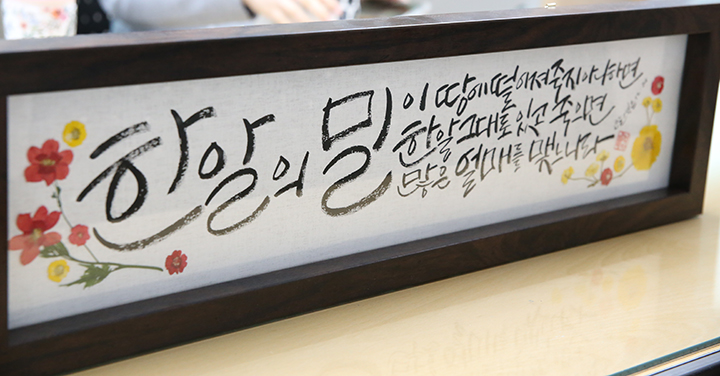 한알의 밀이 땅에 떨어져 죽지 아니하면
한알 그대로 있고 죽으면
많은 열매를 맺느니라